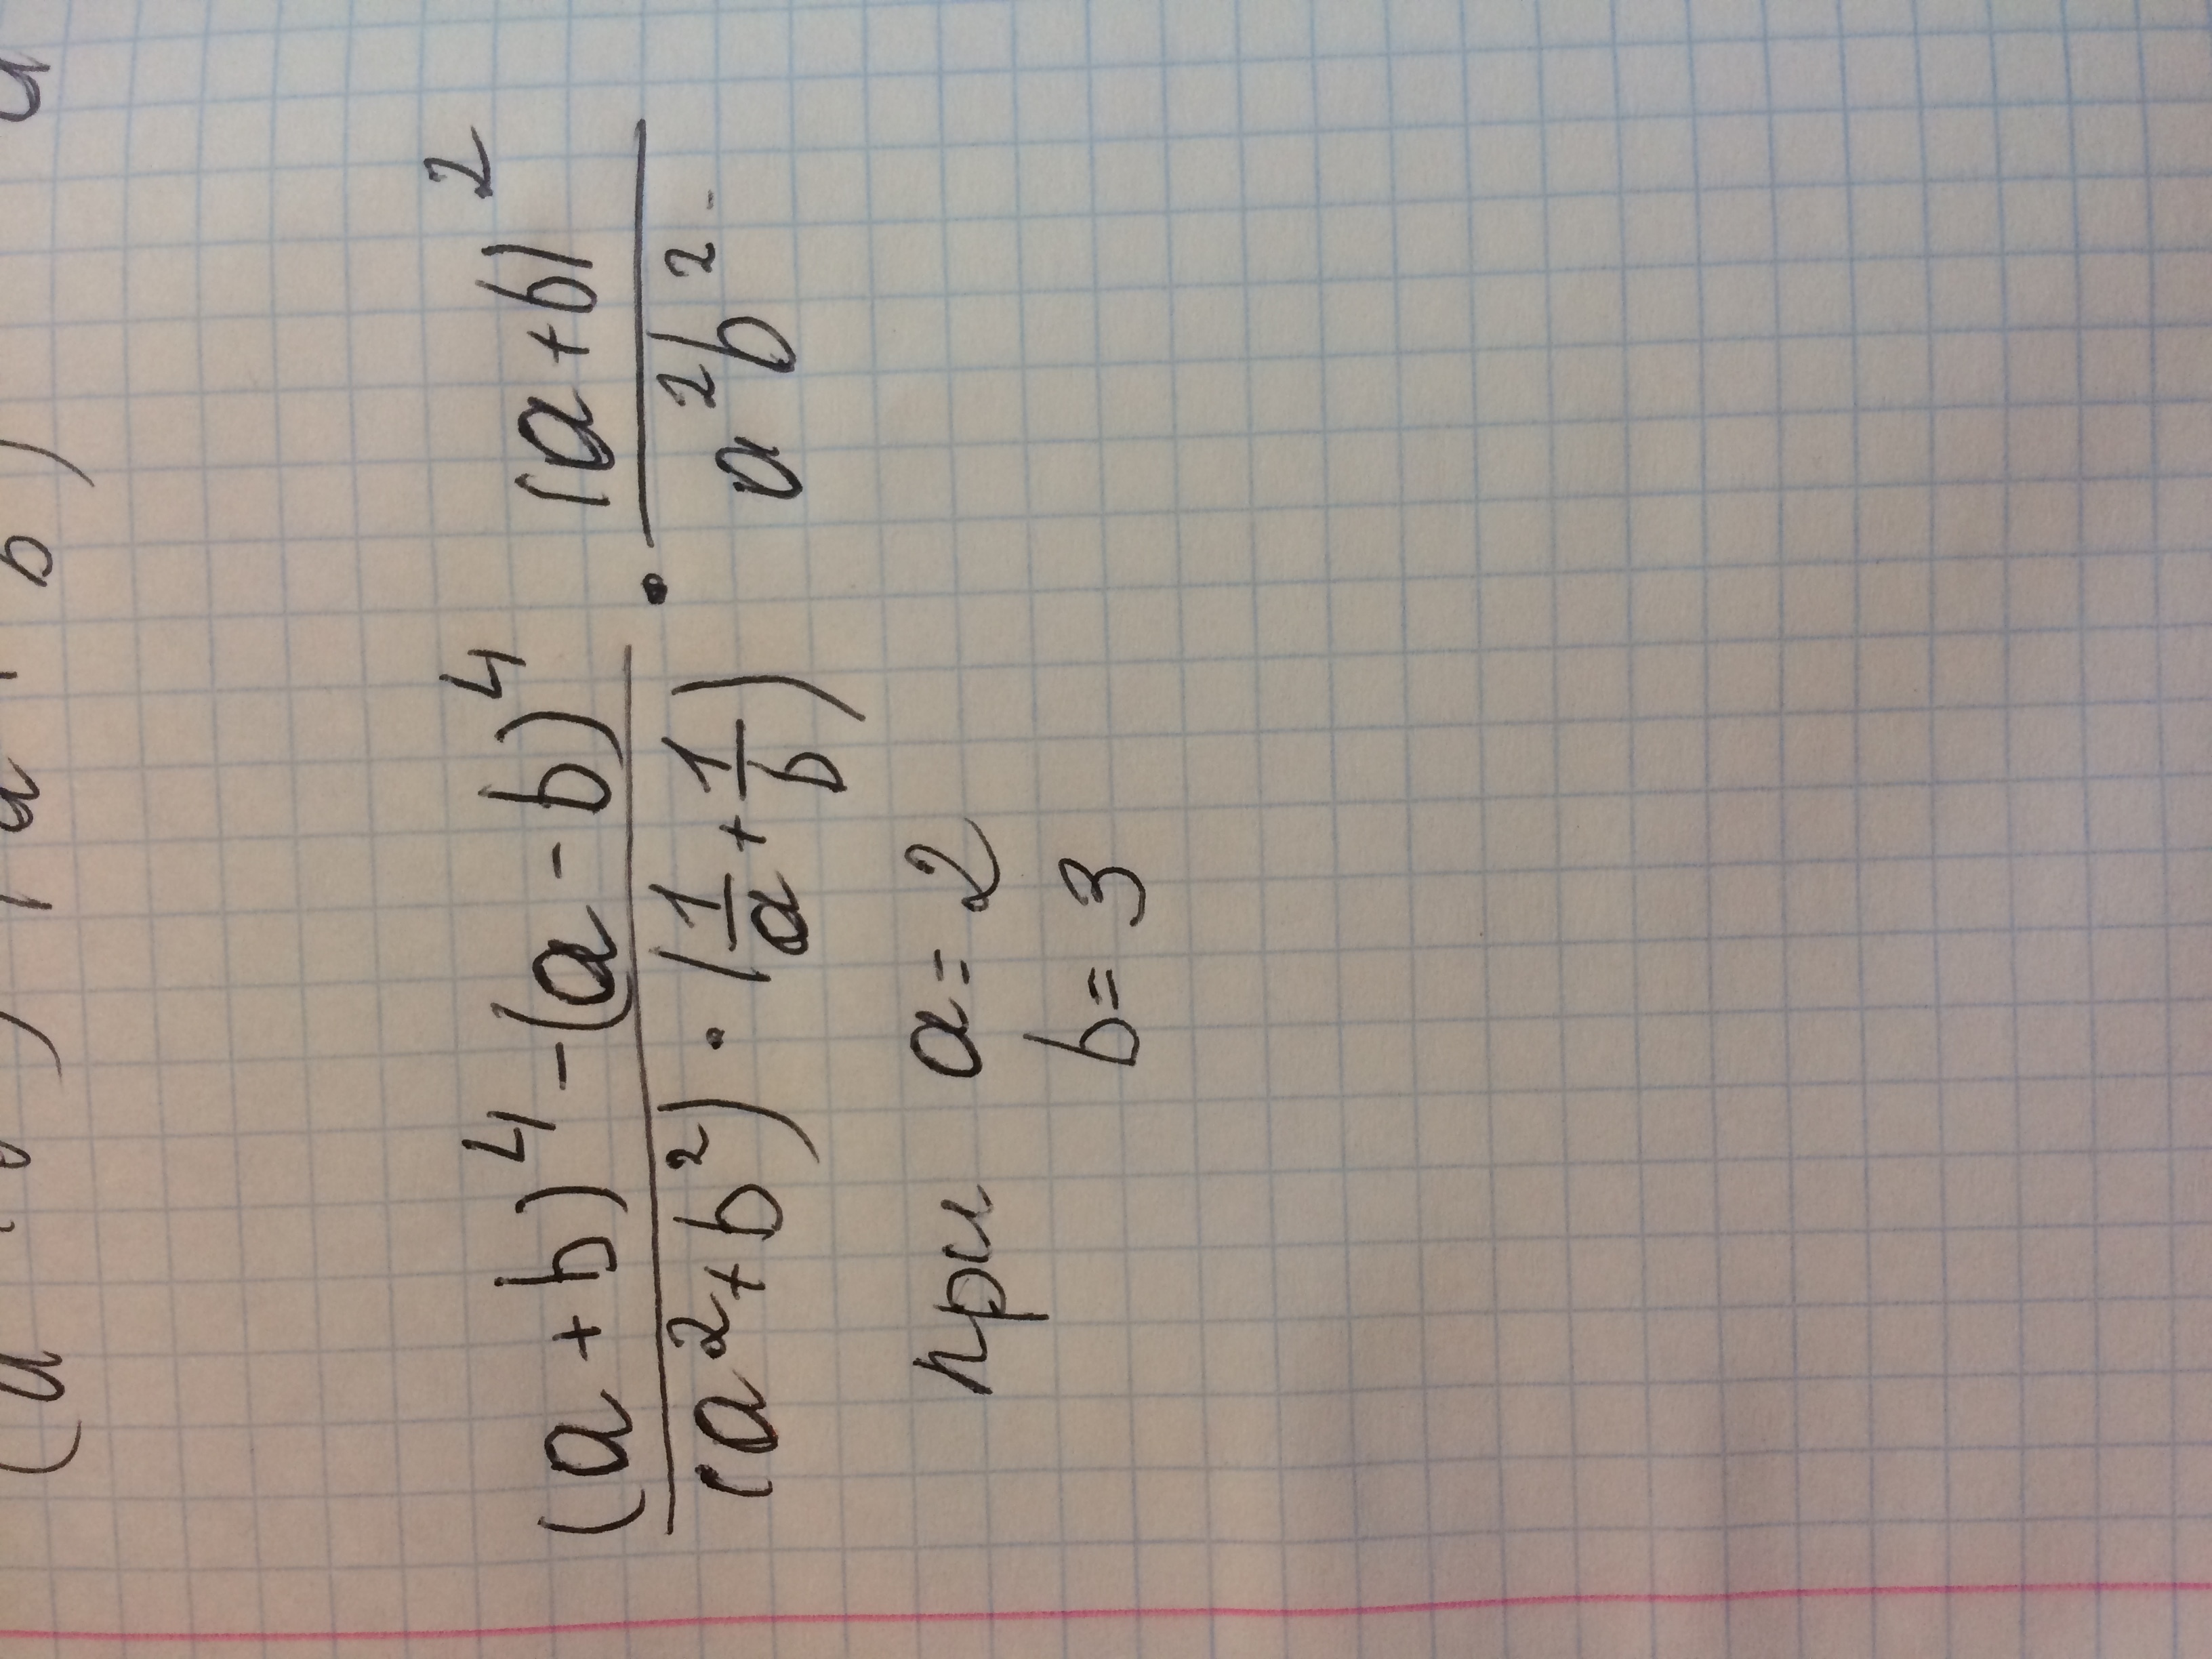 (a+b)⁴-(a-b)⁴ / (a²+b²)·(1/a+1/b) · (a+b)² / a²b²
при a=2
b=3